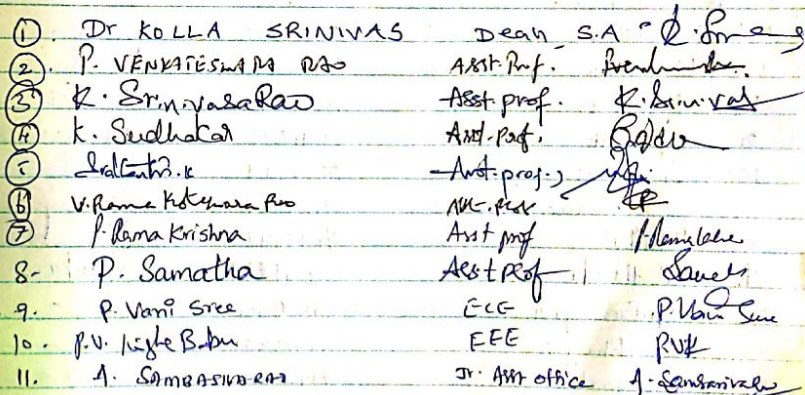 1 Dr KOLLA SRINIVAS Dean S.A
2. P. VENKATESWARA RAO Asst. Prof.
3 K. SrinivasaRao Asst. prof. K. Srinivas
4 K. Sudhakar Asst. Prof.
5 Asst. prof.,
6 V. Rama Koteswara Rao Asst. Prof
7 P. Rama Krishna Asst prof
8- P. Samatha Asst Prof
9. P. Vani Sree ECE P. Vani Sree
10. P.V. Babu EEE PVK
11. A. SAMBASIVARAO Jr. Asst office A. Sambasivarao